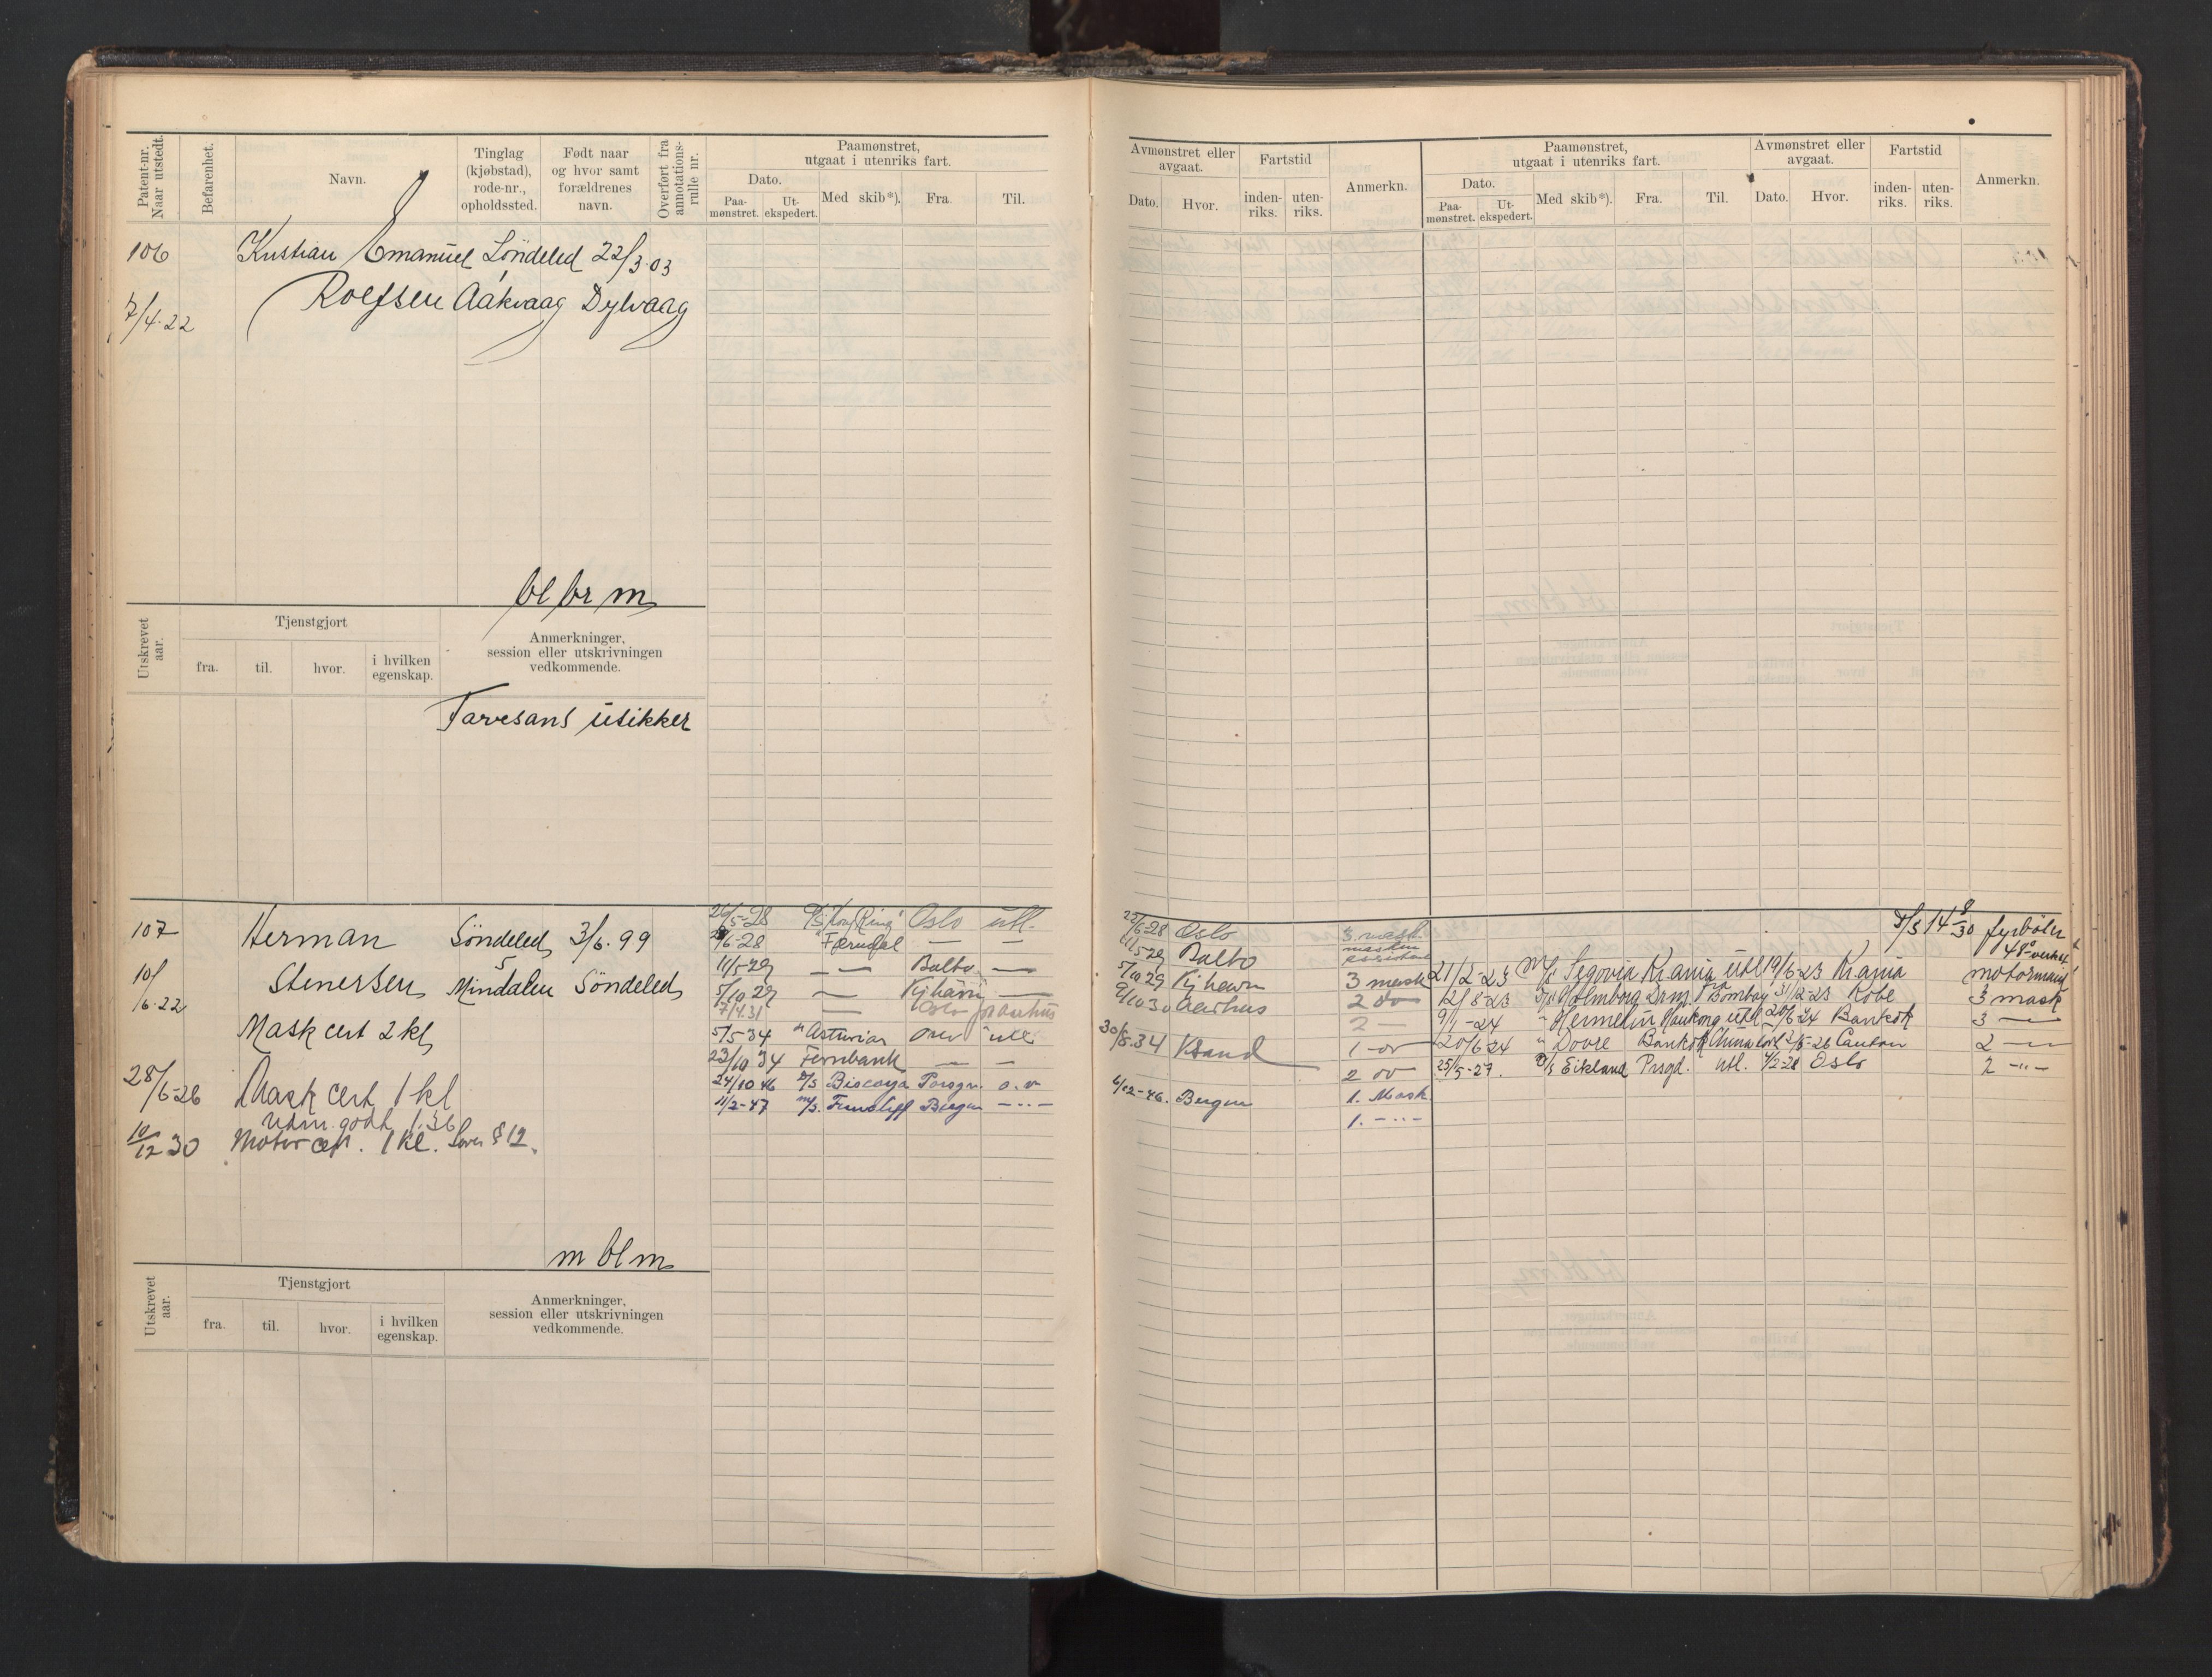 Patent-nr. Naar utstedt.
Befarenhet.
Navn.
Tinglag (kjøbstad), rode-nr., opholdssted.
Født naar og hvor samt forældrenes navn.
Overført fra annotations-rulle nr.
Paamønstret, utgaat i utenriks fart.
Dato.
Paa-mønstret.
Ut-ekspedert.
Med skib*).
Fra.
Til.
106 Kristian Emanuel Söndeled 22/3.03
7/4.22 Rolfsen Aakvaag Dylvaag
bl br m
Utskrevet aar.
Tjenstgjort
fra.
til.
hvor.
i hvilken egenskap.
Anmerkninger, session eller utskrivningen vedkommende.
Farvesans usikker
107 Herman Söndeled 3/6.99
10/6.22 Stenersen Mindalen Söndeled
Mask cert 2 kl
28/6-26 Mask cert 1 kl
10/12 30 Motor cert. 1 kl. § 12.
m bl m
26/5-28 Oslo utl.
/6-28 Færndal — —
11/5-29 — — Balbo —
5/10 29 — Kjhavn —
7/4.31 — Oslo
5/5-34 " Asturias utl
23/10 34 Fernbank — —
24/10 46 Biscaya Porsgr. o.v
11/2-47 M/S. Ferncliff Bergen — - -
Utskrevet aar.
Tjenstgjort
fra.
til.
hvor.
i hvilken egenskap.
Anmerkninger, session eller utskrivningen vedkommende.
Avmønstret eller avgaat.
Dato.
Hvor.
Fartstid
inden-riks.
uten-riks.
Anmerkn.
Paamønstret, utgaat i utenriks fart.
Dato.
Paa-mønstret.
Ut-ekspedert.
Med skib*).
Fra.
Til.
Avmønstret eller avgaat.
Dato.
Hvor.
Fartstid
inden-riks.
uten-riks.
Anmerkn.
25/6-28 Oslo 3. mask.
11/5 29 Balbo
5/10 29 Kjhavn 3 mask
9/10 30 Aarhus 2 do
2 —
30/8.34 Ksand 1 do
2 do
6/12-46. Bergen 1. Mask.
1. — - -
fyrböter
21/2-23 M/S Segovia Kr.ania utl 19/6-23 Kr.ania motormand
12/8-23 Holmberg Drm. Bombay 31/12-23 Kobe 3 mask
9/1-24 " Hermelin Honkong utl 20/6-24 Bankok 3 —
20/6 24 " Dovre Bankok 2/5-26 Canton 2 —
25/5-27. Eikland Prsgd. utl. 4/2-28 Oslo 2 - " -